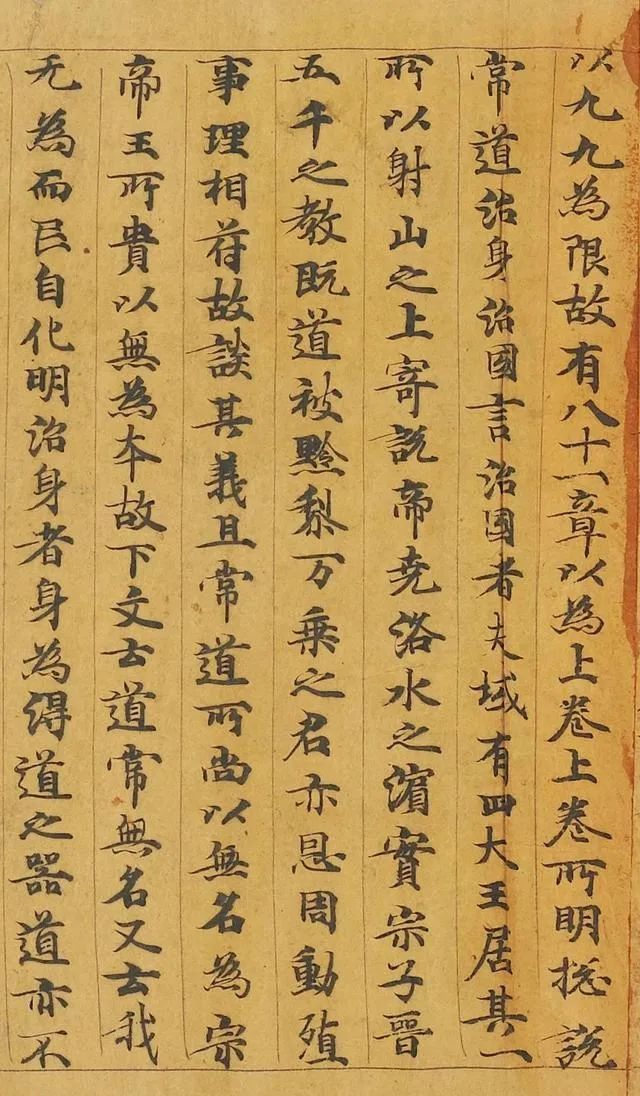 以九九為限故有八十一章以為上卷上卷所明揔說
常道治身治國言治國者夫域有四大王居其一
所以射山之上寄說帝尭洛水之濵實宗子晉
五千之教既道被黔梨万乗之君亦恩周動殖
事理相苻故談其義且常道所尚以無名為宗
帝王所貴以無為為本故下文云道常無名又云我
无為而民自化明治身者身為得道之器道亦不